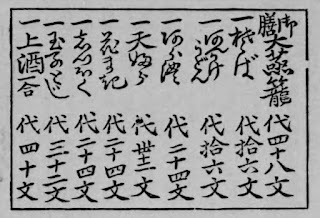 御膳大蒸籠 代四十八文
一そば 代拾六文
一あんかけうどん 代拾六文
一あられ 代二十四文
一天ぷら 代卅二文
一花まき 代二十四文
一しつぽく 代二十四文
一玉子とじ 代三十二文
一上酒合 代四十文